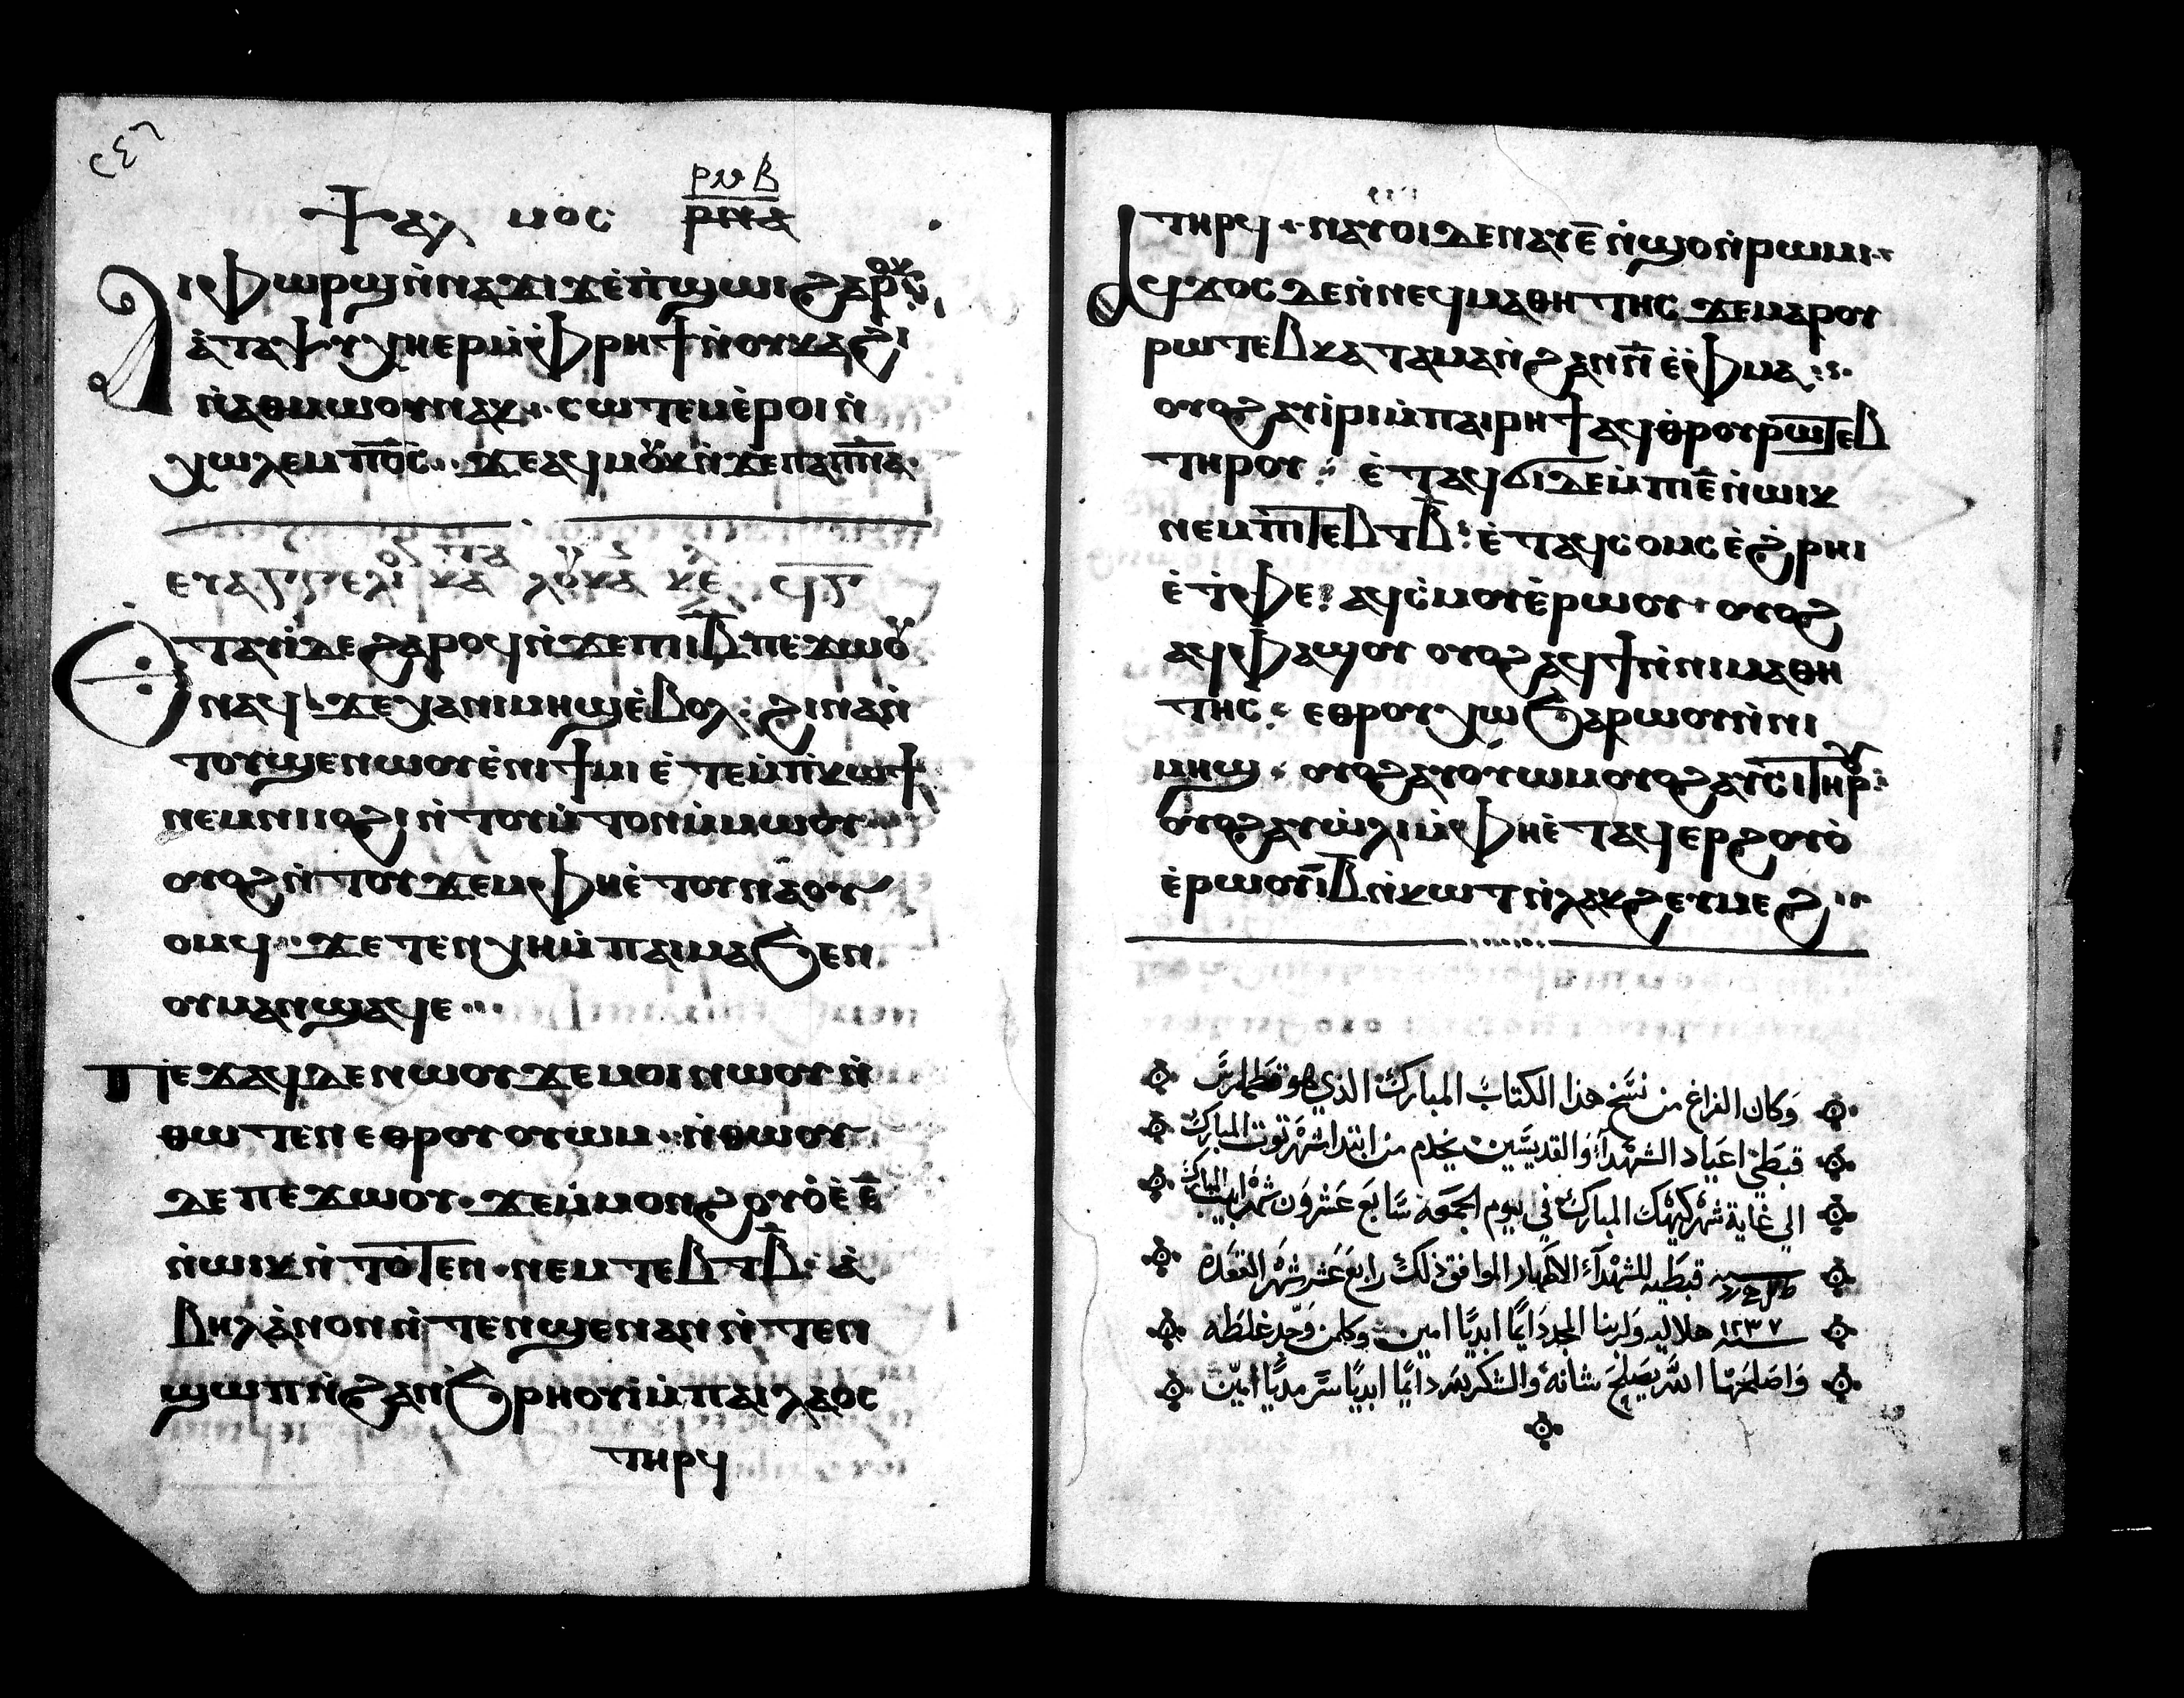 ⲯⲁⲗⲙⲟⲥ ⲣⲙⲃ
ⲣⲙⲁ
ⲁⲓⲫⲱⲣϣ ⲛ̀ⲛⲁϫⲓϫ ⲉ̀ⲡ̀ϣⲱⲓ ϩⲁⲣⲟⲕ
ⲁ̀ⲧⲁⲯⲩⲭⲏ ⲉⲣ ⲙ̀ⲫⲣⲏϯ ⲛ̀ⲟⲩⲕⲁϩⲓ
ⲛ̀ⲁⲑⲙⲱⲟⲩ ⲛⲁⲕ ⲥⲱⲧⲉⲙ ⲉ̀ⲣⲟⲓ ⲛ̀
ⲭⲱⲗⲉⲙ ⲡ⳪ ϫⲉ ⲁϥⲙⲟⲩⲛⲕ ⲛ̀ϫⲉ ⲡⲁⲡ̅ⲛ̅ⲁ̅
ⲉⲩⲁⲅⲅⲉⲗⲓⲟⲛ ⲕⲁⲧⲁ ⲗⲟⲩⲕⲁⲛ ⲕⲉ
ⲉⲧⲁⲩⲓ̀ ⲇⲉ ϩⲁⲣⲟϥ ⲛ̀ϫⲉ ⲡⲓⲓ̅ⲃ̅ ⲡⲉϫⲱⲟⲩ
ⲛⲁϥ ϫⲉ ⲭⲁ ⲛⲓⲙⲏϣ ⲉ̀ⲃⲟⲗ ϩⲓⲛⲁ ⲛ̀
ⲧⲟⲩϣⲉⲛⲱⲟⲩ ⲉ̀ⲛⲓϯⲙⲓ ⲉⲧⲉⲙ̀ⲡ̀ⲕⲱϯ
ⲛⲉⲙ ⲛⲓⲓⲟϩⲓ ⲛ̀ⲧⲟⲩⲙ̀ⲧⲟⲛ ⲙ̀ⲙⲱⲟⲩ
ⲟⲩⲟϩ ⲛ̀ⲧⲟⲩϫⲉⲙ ⲫⲏⲉ̀ⲧⲟⲩⲛⲁⲟⲩ
ⲟⲙϥ ϫⲉ ⲧⲉⲛⲭⲏ ⲙ̀ⲡⲁⲓⲙⲁ ϧⲉⲛ
ⲟⲩⲙⲁⲛϣⲁϥⲉ
ⲡⲉϫⲁϥ ⲇⲉ ⲛⲱⲟⲩ ϫⲉ ⲙⲟⲓ ⲛⲱⲟⲩ ⲛ̀
ⲑⲱⲧⲉⲛ ⲉⲑⲣⲟⲩⲟⲩⲱⲙ ⲛ̀ⲑⲱⲟⲩ
ⲇⲉ ⲡⲉϫⲱⲟⲩ ϫⲉ ⲙ̀ⲙⲟⲛ ϩⲟⲩⲟ̀ ⲉ̀ⲉ̅
ⲛ̀ⲱⲓⲕ ⲛ̀ⲧⲟⲧⲉⲛ ⲛⲉⲙ ⲧⲉⲃⲧ ⲃ̅ ⲁ̀
ⲃⲏⲗ ⲁ̀ⲛⲟⲛ ⲛ̀ⲧⲉⲛϣⲉⲛⲁⲛ ⲛ̀ⲧⲉⲛ
ϣⲱⲡ ⲛ̀ϩⲁⲛϧⲣⲏⲟⲩⲓ̀ ⲙ̀ⲡⲁⲓⲗⲁⲟⲥ
ⲧⲏⲣϥ
ⲧⲏⲣϥ ⲛⲁⲩⲟⲓ ⲇⲉ ⲛⲁⲩ ⲉ̅ ⲛ̀ϣⲟ ⲛ̀ⲣⲱⲙⲓ
ⲁϥϫⲟⲥ ⲇⲉ ⲛ̀ⲛⲉϥⲙⲁⲑⲏⲧⲏⲥ ϫⲉ ⲙⲁⲣⲟⲩ
ⲣⲱⲧⲉⲃ ⲕⲁⲧⲁ ⲙⲁ ⲛ̀ϩⲁⲛⲛ̅ ⲉ̀ⲫ̀ⲙⲁ
ⲟⲩⲟϩ ⲁⲩⲓ̀ⲣⲓ ⲙ̀ⲡⲁⲓⲣⲏϯ ⲁϥⲑⲣⲟⲩⲣⲱⲧⲉⲃ
ⲧⲏⲣⲟⲩ ⲉ̀ⲧⲁϥϭⲓ ⲇⲉ ⲙ̀ⲡⲓⲉ̅ ⲛ̀ⲱⲓⲕ
ⲛⲉⲙ ⲡⲓⲧⲉⲃⲧ ⲃ̅ ⲉ̀ⲧⲁϥⲥⲟⲙⲥ ⲉ̀ϩ̀ⲣⲏⲓ
ⲉ̀ⲧ̀ⲫⲉ ⲁϥⲥ̀ⲙⲟⲩ ⲉ̀ⲣⲱⲟⲩ ⲟⲩⲟϩ
ⲁϥⲫⲁϣⲟⲩ ⲟⲩⲟϩ ⲁϥϯ ⲛ̀ⲛⲓⲙⲁⲑⲏ
ⲧⲏⲥ ⲉⲑⲣⲟⲩⲭⲱ ϧⲁⲣⲱⲟⲩ ⲛ̀ⲛⲓ
ⲙⲏϣ ⲟⲩⲟϩ ⲁⲩⲟⲩⲱⲙ ⲟⲩⲟϩ ⲁⲩⲥⲓ ⲧⲏⲣⲟⲩ
ⲟⲩⲟϩ ⲁⲩⲱ̀ⲗⲓ ⲙ̀ⲫⲏⲉ̀ⲧⲁϥⲉⲣϩⲟⲩⲟ̀
ⲉ̀ⲣⲱⲟⲩ ⲓ̅ⲃ̅ ⲛ̀ⲕⲱⲧ ⲛ̀ⲗⲁⲕϩ ⲉⲩⲙⲉϩ
وكان الفراغ من نسخ هذا الكتاب المبارك الذي هو قطمارس
قبطي اعياد الشهداء والقديسين يخدم من ابتدا شهر توت المبارك
الي غاية شهر كيهك المبارك في يوم الجمعه سابع عشرون شهر ابيب المبارك
قبطيه للشهداء الاطهار الموافق ذلك رابع عشر شهر القعده
سنة ١٢٣٧ هلاليه ولربنا المجد دايمًا ابديًا امين وكلمن وجد غلطه
واصلحها الله يصلح شانه والشكر لله دايمًا ابديًا سرمديًا امين